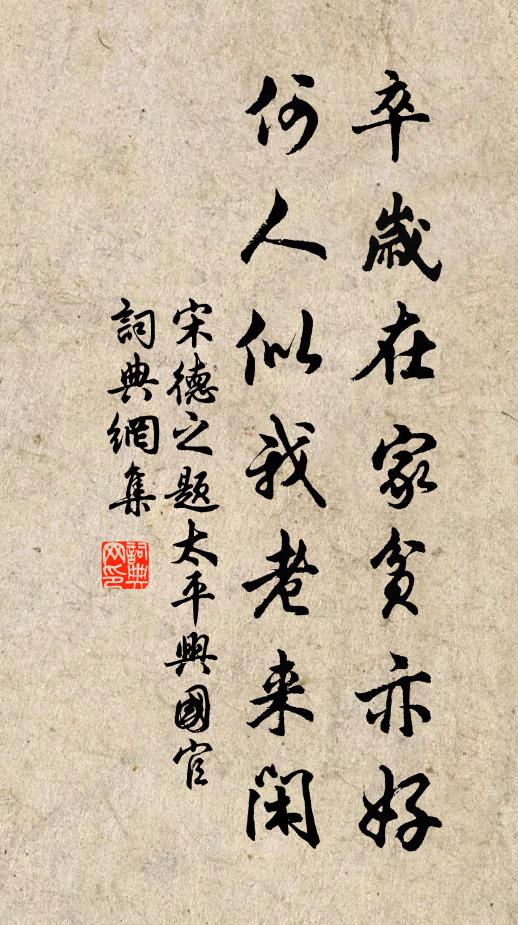 卒歲在家貧亦好
何人似我老来閑
宋德之题太平興國官
詞典網集
詞典
网印